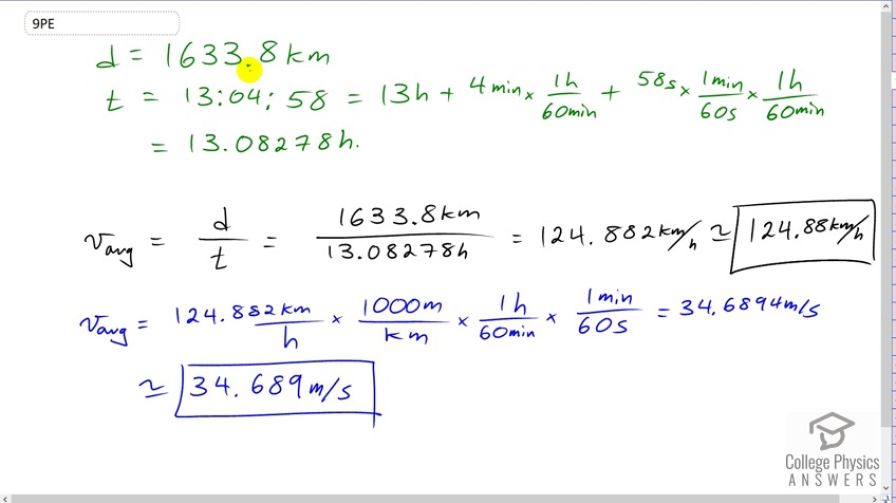 9PE
d = 1633.8 km
t = 13:04:58 = 13h + 4 min × 1h/60min + 58s × 1min/60s × 1h/60min
= 13.08278h.
v avg = d/t = 1633.8 km/13.08278h = 124.882 km/h ≃ 124.88 km/h
v avg = 124.882 km/h × 1000m/km × 1h/60min × 1min/60s = 34.6894 m/s
≃ 34.689 m/s
College Physics
ANSWERS